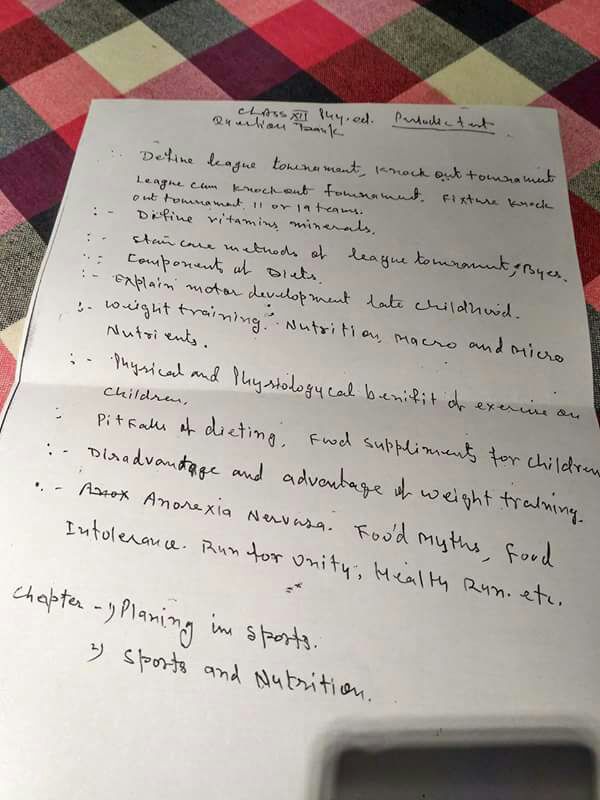 CLASS XII Phy. ed. Periodic test
Question Bank
:- Define league tournament, Knock out tournament
League cum Knockout tournament. Fixture Knock
out tournament 11 or 19 teams.
:- Define vitamins, minerals.
:- Stair case methods of league tournament, Byes.
:- Components of Diets.
:- Explain motor development late childhood.
:- Weight training. Nutrition, Macro and Micro
Nutrients.
:- Physical and Physiologycal benifit of exercise on
children.
:- Pitfalls of dieting, Food suppliments for children
:- Disadvantage and advantage of weight training.
:- Anorexia Nervasa. Food Myths, Food
Intolerance. Run for Unity, Health Run. etc.
Chapter - 1) Planing in Sports.
2) Sports and Nutrition.